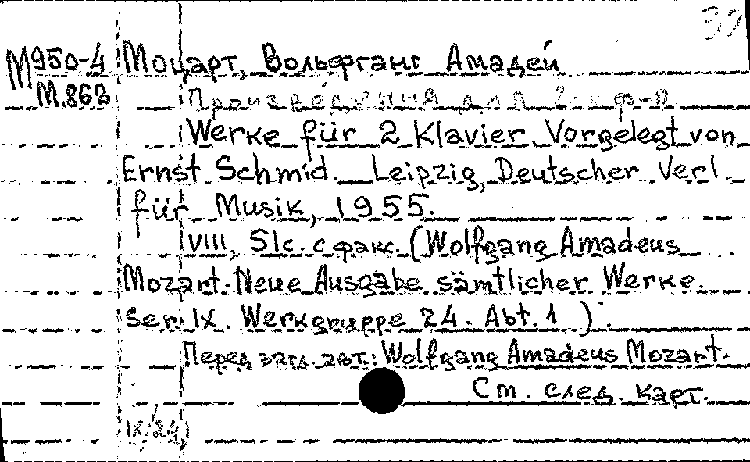 39
М950-4 Моцарт, Вольфганг Амадей
М.863 Произведения для 2-х ф-п
Werke für 2 Klavier. Vorgelegt von
Ernst Schmid. Leipzig, Deutscher Verl.
für Musik, 1955.
VIII, 51c. с факс. (Wolfgang Amadeus
Mozart. Neue Ausgabe sämtlicher Werke.
Ser. IX. Werkgruppe 24. Abt. 1).
Перед загл. авт.: Wolfgang Amadeus Mozart.
См. след. карт.
IX,24,1